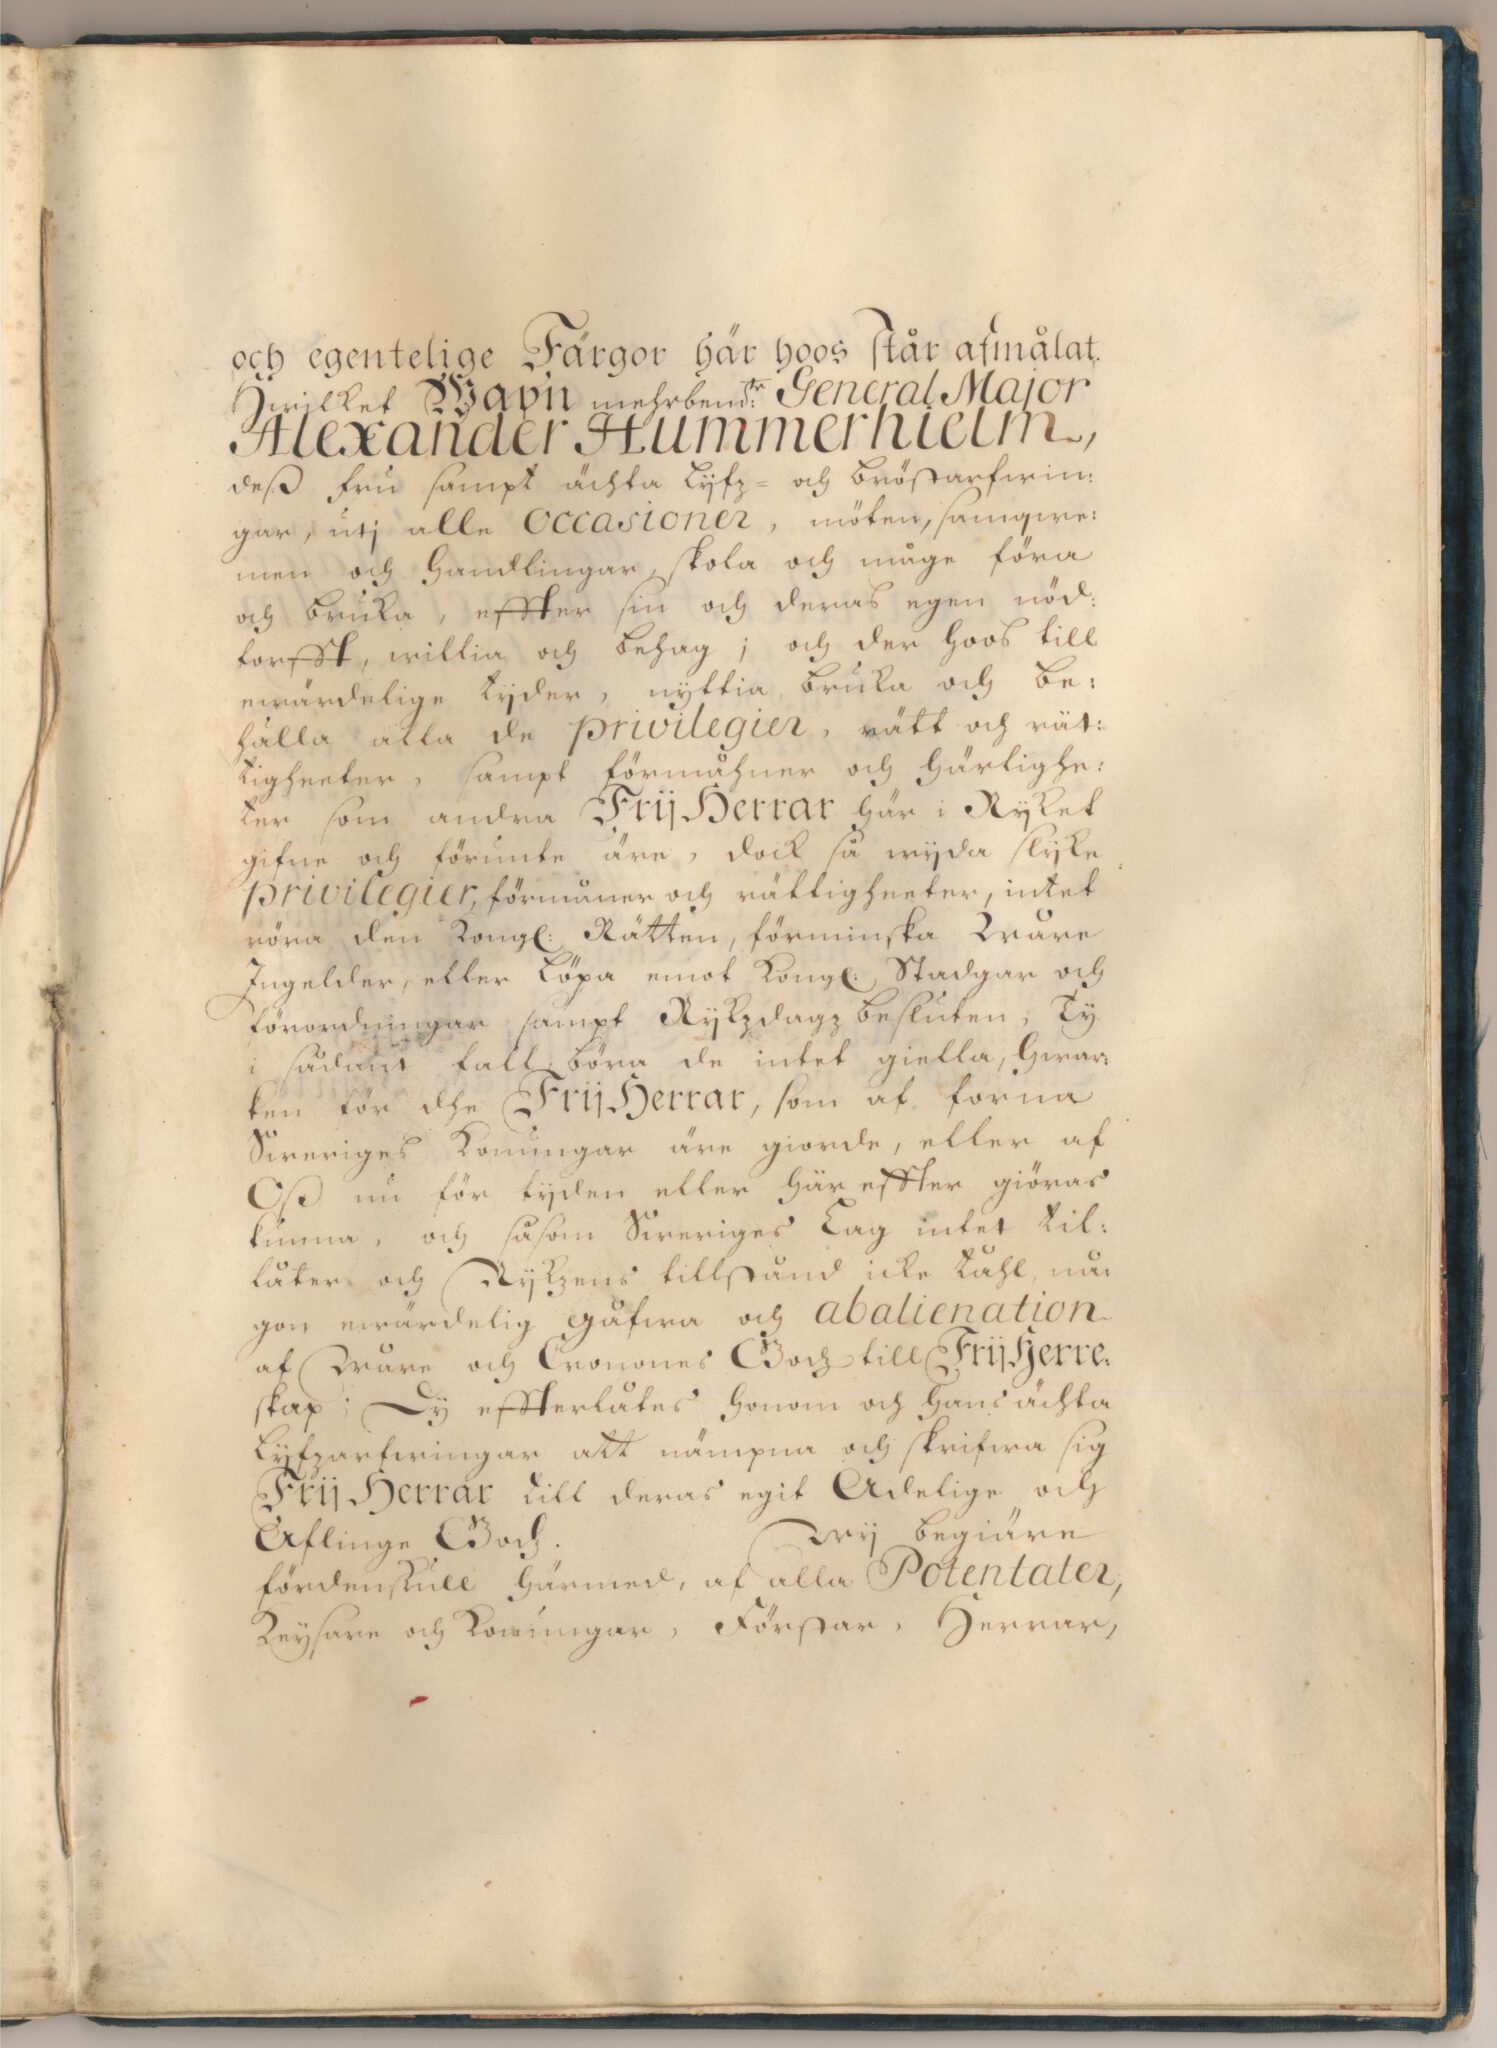 och egentelige Färgor här hoos står afmålat.
Hwilket Wapn mehrbem:te General Major
Alexander Hummerhielm,
deß Fru sampt ächta Lyfz- och Bröstarfwin:
gar, utj alle Occasioner, möten, samqwe:
men och Handlingar, skola och måge föra
och bruka, effter sin och deras egen nöd:
torfft, willia och behag; och der hoos till
ewärdelige tyder, nyttia, bruka och be:
hålla alla de privilegier, rätt och rät:
tigheeter, sampt förmåhner och Härlighe:
ter som andra Frij Herrar här i Ryket
gifne och förunte äre, dock så wyda slyke
privilegier, förmåner och rättigheeter, intet
röra den Kongl: Rätten, förminska Wåre
Ingelder, eller löpa emot Kongl: Stadgar och
förordningar sampt Rykzdagz besluten; Ty
i sådant fall böra de intet giella, hwar:
ken för dhe Frij Herrar, som af forna
Sweriges Konungar äre giorde, eller af
Oß nu för tyden eller här effter giöras
kunna, och såsom Sweriges Lag intet til:
låter och Rykzens tillstånd icke tåhl nå:
gon ewärdelig gåfwa och abalienation
af Wåre och Cronones Godz till Frij Herre:
skap; Dy effterlåtes honom och hans ächta
Lyfzarfwingar att nämpna och skrifwa sig
Frij Herrar till deras egit Adelige och
Aflinge Godz. Wij begiäre
fördenskull härmed, af alla Potentater,
Keysare och Konungar, Förstar, Herrar,